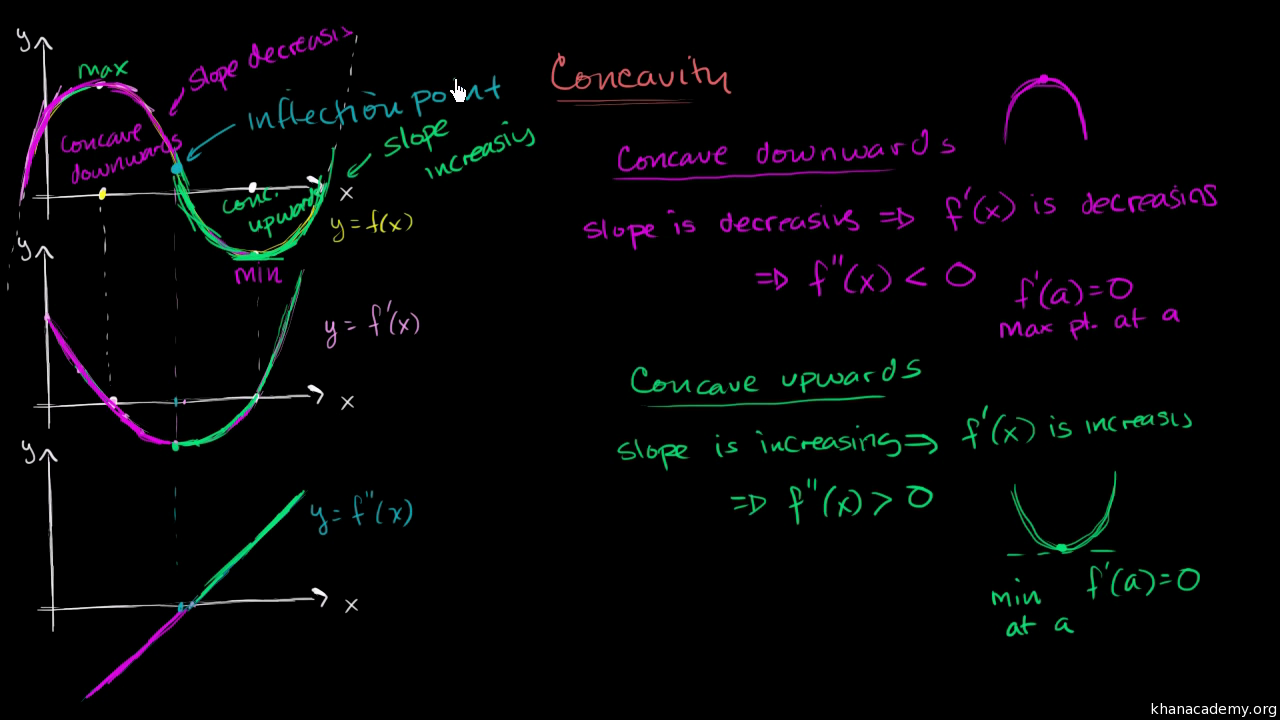 y
max
slope decreasis
concave
downwards
inflection point
slope
increasis
conc.
upwards
x
y = f(x)
min
y
y = f'(x)
x
y
y = f"(x)
x
Concavity
Concave downwards
slope is decreasing ⇒ f'(x) is decreasing
⇒ f"(x) < 0
f'(a)=0
max pt. at a
Concave upwards
slope is increasing ⇒ f'(x) is increasis
⇒ f"(x) > 0
min
at a
f'(a)=0
khanacademy.org